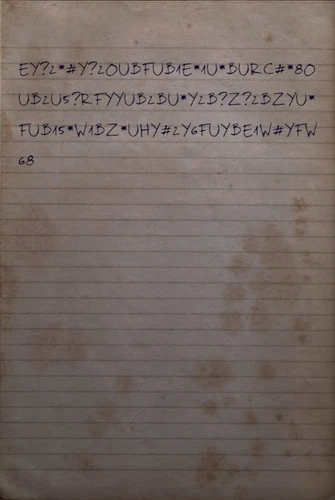 EY?2*#Y?2OUBFUB1E*1U*BURC#*8O
UB2U5?RFYYUB2BU*Y2B?Z?2BZYU*
FUB15*W1BZ*UHY#2Y6FUYBE1W#YFW
68